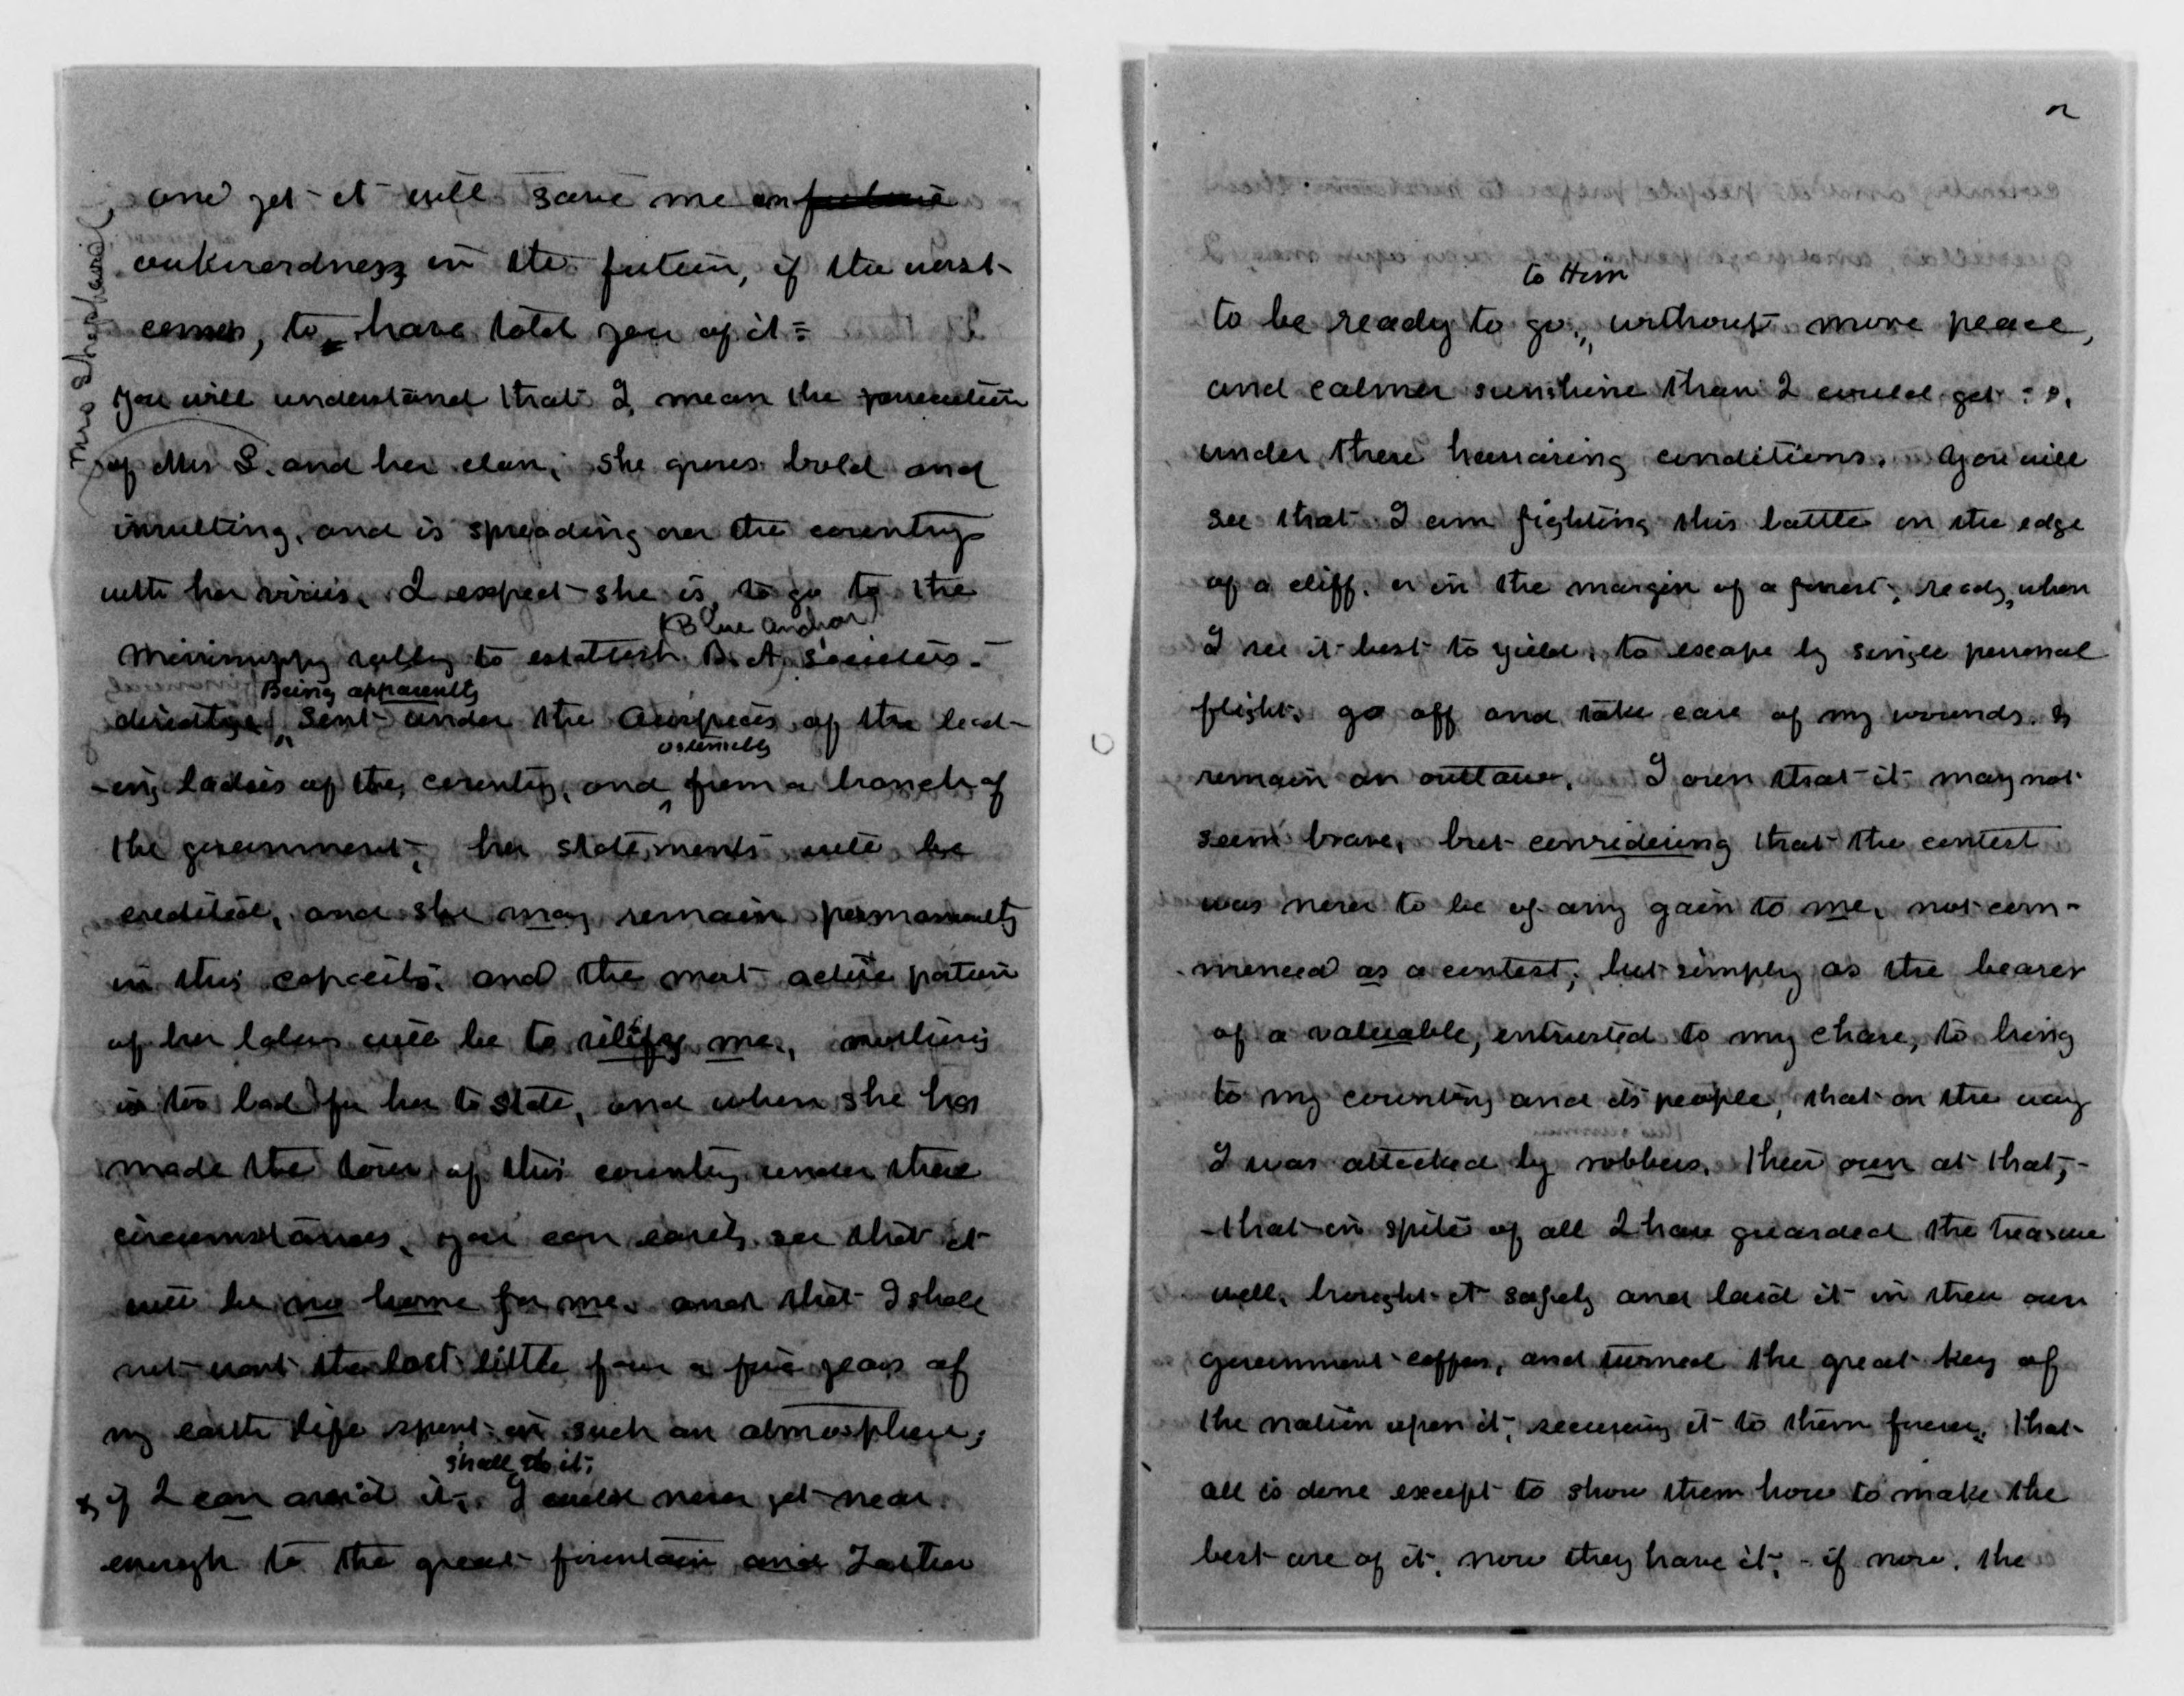 and yet it will save me an future
awkwardness in the future, if the worst
comes, to have told you of it =
You will understand that I mean the persecution
Mrs Shephard
of Mrs S. and her clan, she grows bold and
insulting, and is spreading over the country
with her virus, I expect she is to go to the
Blue Anchor
Mississippi valley to establish B. A. Societies. -
Being apparently
directly sent under the Auspices of the lead-
ostensibly
-ing ladies of the country, and from a branch of
the government, her statements will be
credited, and she may remain permanently
in this capacity. and the most active portion
of her labors will be to vilify me, nothing
is too bad for her to state, and when she has
made the tour of this country under these
circumstances, you can easily see that it
will be no home for me. and that I shall
not want the last little four or five years of
my earth life spent in such an atmosphere,
shall do it;
& if I can avoid it, I could never get near
enough to the great fountain and Father
2
to Him
to be ready to go, without more peace,
and calmer sunshine than I could get
under these harrassing conditions. You will
see that I am fighting this battle on the edge
of a cliff, or in the margin of a forest, ready, when
I see it best to yield, to escape by single personal
flight. go off and take care of my wounds. &
remain an outlaw. I own that it may not
seem brave, but considering that the contest
was never to be of any gain to me, not com-
menced as a contest, but simply as the bearer
of a valuable, entrusted to my chare, to bring
to my country and its people, that on the way
I was attacked by robbers, their own at that, -
- that in spite of all I have guarded the treasure
well, brought it safely and laid it in their own
government coffers, and turned the great key of
the nation upon it, securing it to them forever. That
all is done except to show them how to make the
best use of it, now they have it, - if now, the